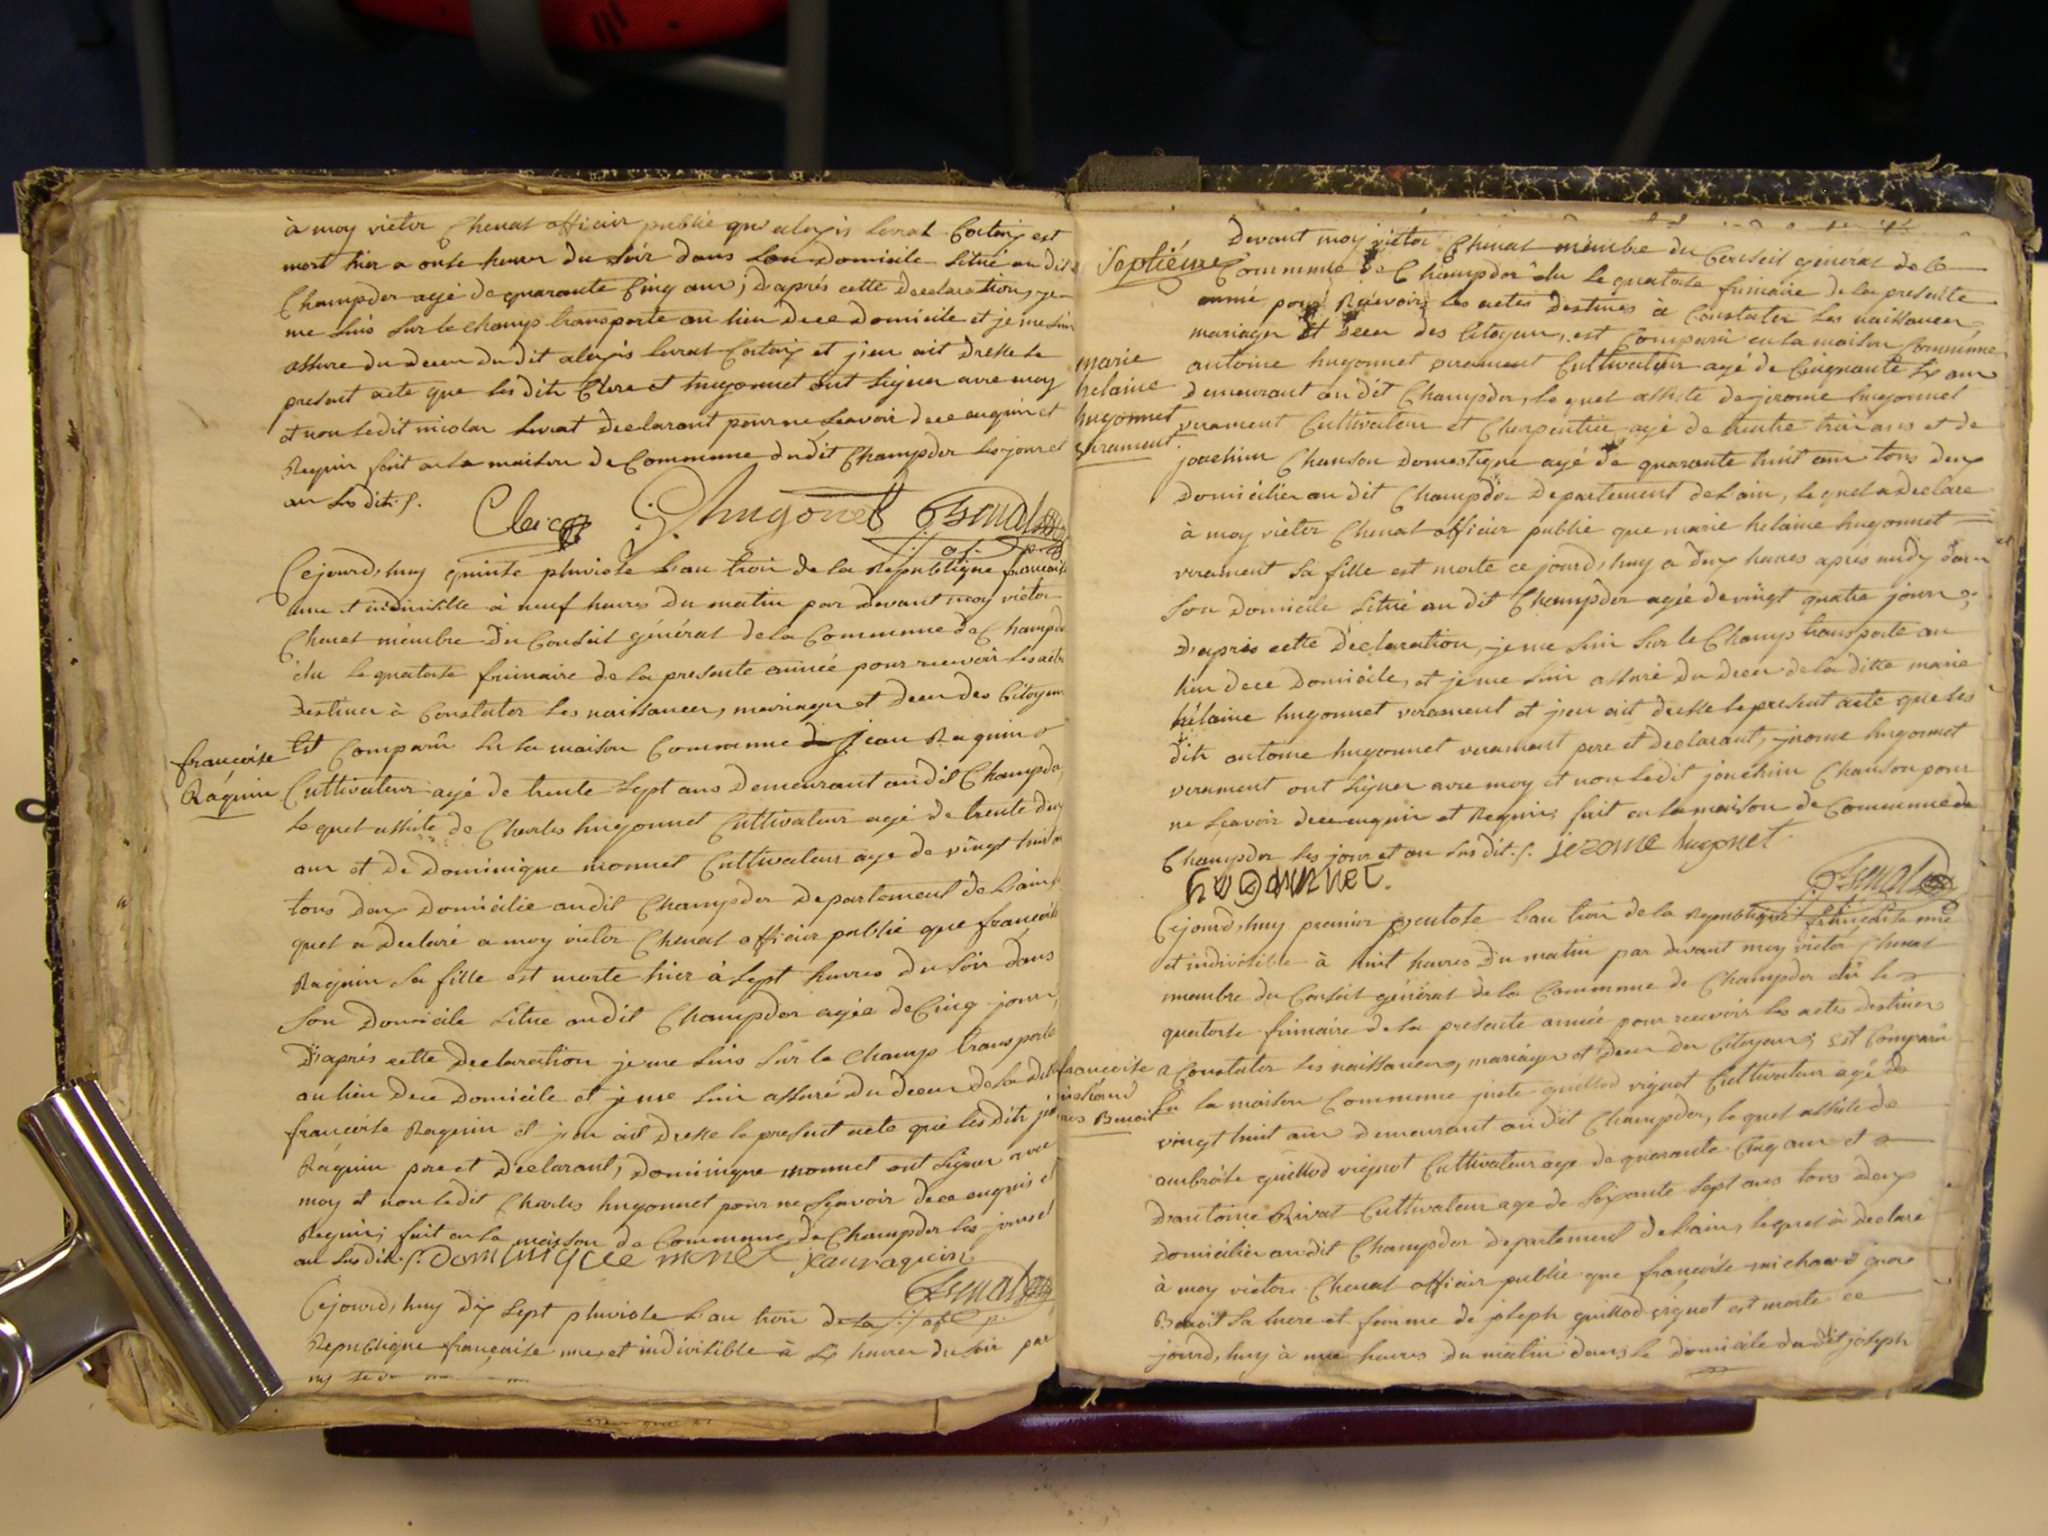 à moy victor Chenat officier public qu'alexis Livrat Costaz est
mort hier a onse heures du soir dans son Domicile Situé au dit
Champdor agé de quarante Cinq ans, D'aprés cette Declaration, je
me suis sur le champs transporté au lieu de ce Domicile et je me suis
assure du deces du dit alexis Livrat Costaz et j'en ait dresse le
present acte que les dits Clerc et hugonnet ont signer avec moy
et non ledit nicolas Livrat Declarant pour ne Scavoir de ce enquis et
Requis fait en la maison de Commune dudit Champdor les jour et
an susdits.
Clerc Hugonet Chenat
Cejourd'huy quinse pluviose L'an trois de la Republique francoise
une et indivisible à neuf heures du matin par devant moy victor
Chenat mémbre du Conseil général de la Commune de Champdor
élu le quatorse frimaire de la presente année pour recevoir les actes
Destines à Constater les naissances, mariages et deces des Citoyens
Est Comparû en la maison Commune jean Raquin
francoise
Raquin
Cultivateur agé de trente sept ans Demeurant audit Champdor
le quel assisté de Charles hugonnet Cultivateur agé de trente deux
ans et de Dominique monnet Cultivateur age de vingt huit ans
tous deux Domicilié audit Champdor departement de L'ain
quel a declaré a moy victor Chenat officier public que francoise
Raquin sa fille est morte hier à sept heures du soir dans
son Domicile Situe audit Champdor agée de Cinq jours
D'aprés cette Declaration je me suis sur le Champs transporté
au lieu de ce Domicile et je me suis assuré du deces de la dite
francoise Raquin et j'en ait dresse le present acte que les dits jean
Raquin pere et Declarant, Dominique monnet ont signer avec
moy et non ledit Charles hugonnet pour ne Scavoir de ce enquis et
Requis; fait en la maison de Commune de Champdor les jour et
an susdits. Dominique monet jean raquin
Chenat
Cejourd'huy dix sept pluviose L'an trois de la
Republique francaise une et indivisible à six heures du soir par
Devant moy victor Chenat mémbre du Conseil général de la
Septiéme
Commune de Champdor élu le quatorse frimaire de la presente
année pour Recevoir les actes Destines à Constater les naissances
mariages et deces des Citoyens, est Comparu en la maison Commune
marie
helaine
hugonnet
vurament.
antoine hugonnet vurament Cultivateur agé de Cinquante six ans
Demeurant au dit Champdor, le quel assisté de jerome hugonnet
vurament Cultivateur et Charpentier agé de trente trois ans et de
joachim Chanson Domestique agé de quarante huit ans tous deux
Domicilier au dit Champdor Departement de L'ain, le quel a Declare
à moy victor Chenat officier public que marie helaine hugonnet
vurament Sa fille est morte ce jourd'huy a deux heures aprés midy dans
son Domicile situé au dit Champdor agé de vingt quatre jours;
D'aprés cette Declaration, je me suis sur le Champs transporté au
lieu de ce Domicile, et je me suis assuré du deces de la ditte marie
hélaine hugonnet vurament et j'en ait dresse le present acte que les
dits antoine hugonnet vurament pere et declarant, jerome hugonnet
vurament ont signer avec moy et non ledit joachim Chanson pour
ne Scavoir de ce enquis et Requis; fait en la maison de Commune de
Champdor les jour et an susdits. jerome hugonet
hugonnet.
Chenat
Cejourd'huy premier ventose L'an trois de la Republique francaise une
et indivisible à huit heures du matin par devant moy victor Chenat
membre du Conseil général de la Commune de Champdor élû le
quatorse frimaire de la presente année pour recevoir les actes destines
francoise
michaud
Benoit
a Constater les naissances, mariages et deces des Citoyens; Est Comparû
En la maison Commune juste quillod vignot Cultivateur agé de
vingt huit ans demeurant au dit Champdor, le quel assisté de
ambroise quillod vignot Cultivateur age de quarante Cinq ans et
D'antoine Rivat Cultivateur age de soixante sept ans tous deux
Domicilier audit Champdor departement de L'ain, lequel à declare
à moy victor Chenat officier public que francoise michaud
Benoit sa mere et femme de joseph quillod vignot est morte ce
jourd'huy à une heures du matin dans le domicile du dit joseph